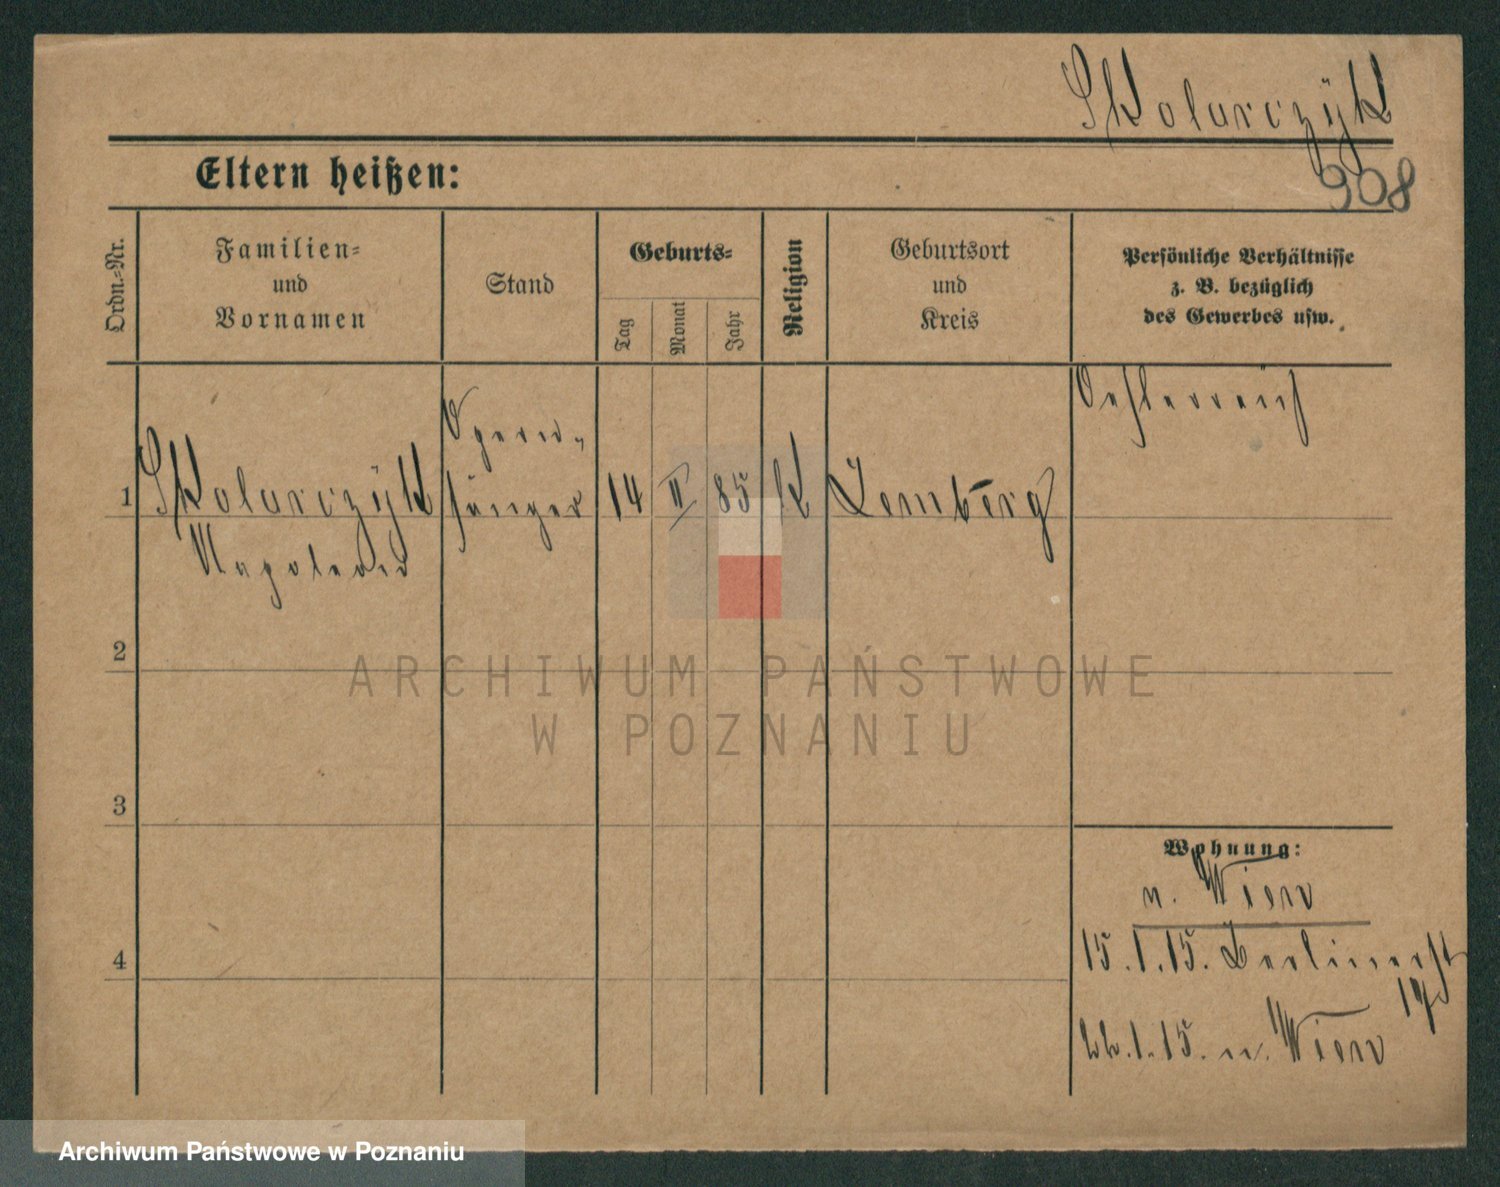 Skolarczÿk
908
Eltern heißen:
Ordn.-Nr.
Familien-
und
Vornamen
Stand
Geburts-
Tag
Monat
Jahr
Religion
Geburtsort
und
Kreis
Persönliche Verhältnisse
z. B. bezüglich
des Gewerbes usw.
1 Skolarczÿk Opern- 14 II 85 K Lemberg Oesterreich
Napoleon sänger
2
3
4
Wohnung:
n. Wien
15.1.15. Berlinerst
22.1.15. n. Wien
ARCHIWUM PAŃSTWOWE
W POZNANIU
Archiwum Państwowe w Poznaniu